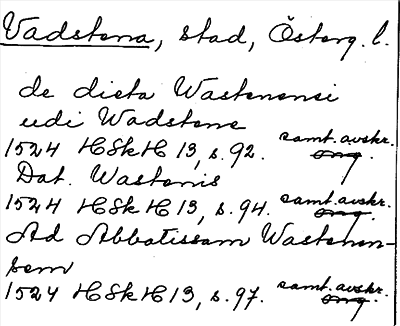 Vadstena, stad, Österg. l.
de dieta Wastenensi
udi Wadstene
samt. avskr.
1524 HSkH 13, s. 92. orig.
Dat. Wastenis
samt. avskr.
1524 HSkH 13, s. 94. orig.
Ad Abbatissam Wastenen-
sem
samt. avskr.
1524 HSkH 13, s. 97. orig.